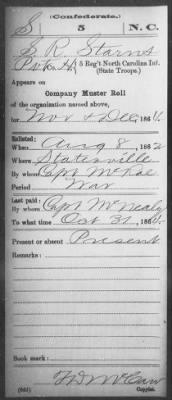 (Confederate.)
S 5 N.C.
S. R. Starns
Pvt. Co. H, 5 Reg't North Carolina Inf.
(State Troops.)
Appears on
Company Muster Roll
of the organization named above,
for Nov & Dec, 1864.
Enlisted:
When Aug 8, 1862
Where Statesville
By whom Capt McRae
Period War
Last paid:
By whom Capt McNealy
To what time Oct 31, 1864.
Present or absent Present
Remarks:
Book mark:
(642) Copyist.